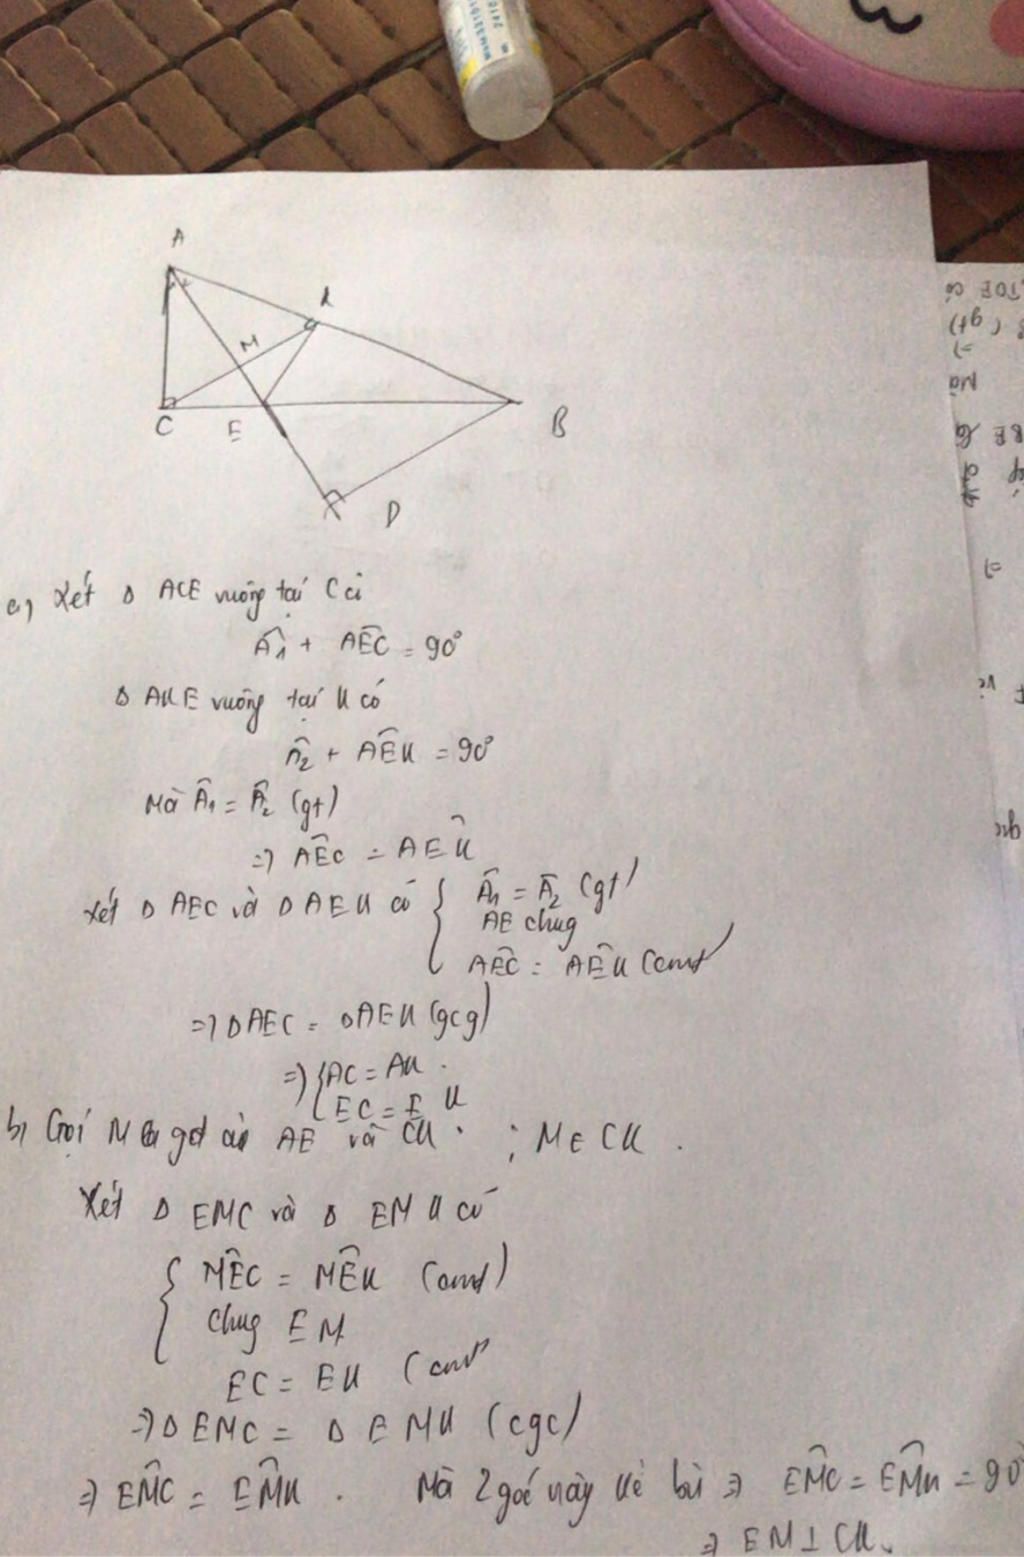 A
K
M
C
E
B
D
a, Xét Δ ACE vuông tại C có
Â1 + AÊC = 90°
Δ AKE vuông tại K có
Â2 + AÊK = 90°
Mà Â1 = Â2 (gt)
=> AÊC = AÊK
Xét Δ AEC và Δ AEK có { Â1 = Â2 (gt)
AE chug
AÊC = AÊK (cmt)
=> Δ AEC = Δ AEK (gcg)
=> { AC = AK .
EC = E K
b, Gọi M là gđ của AE và CK . ; M ∈ CK .
Xét Δ EMC và Δ EMK có
{ MÊC = MÊK (cmt)
chug EM
EC = EK (cmt)
=> Δ EMC = Δ EMK (cgc)
=> EM̂C = EM̂K . Mà 2 góc này kề bù => EM̂C = EM̂K = 90°
=> EM ⊥ CK.